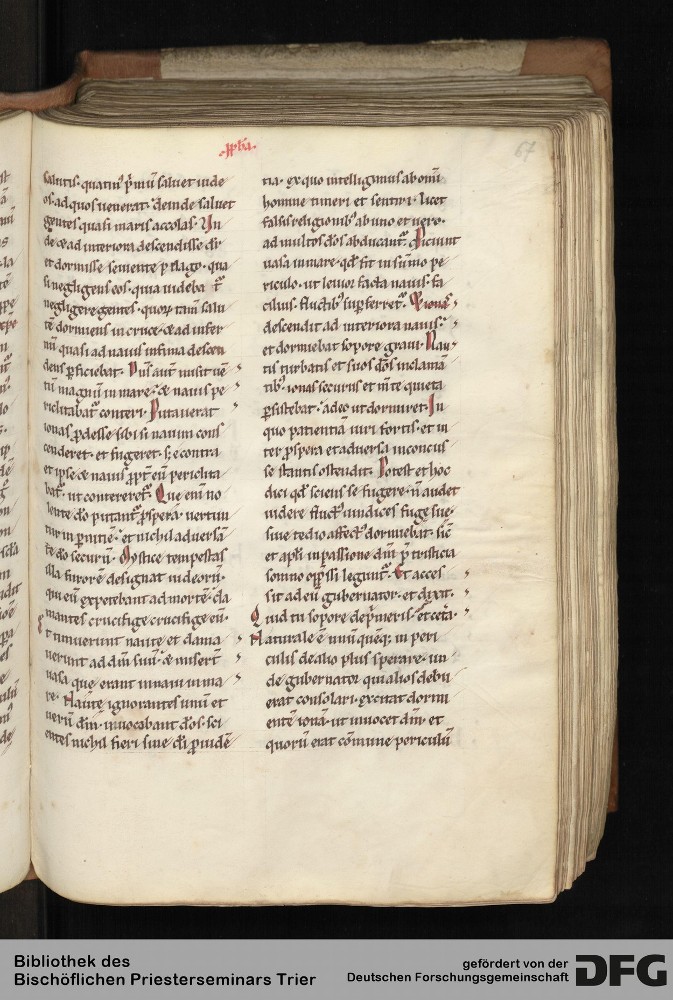 .ꝓph̄a.
67
salutis. quatin᷒ p̄mū saluet iude
os. ad quos uenerat. deinde saluet
gentes quasi maris accolas. Jn
de & ad interiora descendisse dr̄
et dormisse se mente p̄ plago. qua
si negligens eos. qui a uidebat᷑
negligere gentes. quoꝝ tam̄ salu
tē dormiens in cruce. & ad infer
nū quasi ad nauis infima descen
dens ꝑficiebat. Dn̄s aut̄ misit uē
tū magnū in mare. & nauis pe
riclitabat᷑ conteri. Putauerat
ionas ꝓdesse sibi si nauim cons
cenderet. et fugeret. s; e contra
et ipse & nauis ꝓpt̄ eū periclita
bat᷑. ut contereret᷑. Que eni no
lente d̄o putant᷑ ꝓspera. uertun
tur in p̄nitiē. et nichil aduersā
te d̄o securū. Mystice tempestas
illa furorē designat iudeorū.
qui eū expetebant ad mortē. cla
mantes crucifige crucifige eū.
Et timuerunt naute et clama
uerunt ad dm̄ suū. & misert̄
uasa que erant in naui in ma
re. Naute ignorantes unū et
uerū dm̄. inuocabant d̄os. sci
entes nichil fieri sine d̄i ꝓuidē
tia. ex quo intelligimus ab omī
homine timeri et sentiri. licet
falsis religionib᷒ ab uno et uero.
ad multos d̄os abducant᷑. Piciunt
uasa in mare. qd̄ fit in sūmo pe
riculo. ut leuior facta nauis. fa
cilius fluctib᷒ suꝑferret᷑. Et ionas
descendit ad interiora nauis.
et dormiebat sopore graui. Nau
tis turbatis et suos d̄os inclamā
tib᷒. ionas securus et m̄te quieta
ꝑsistebat. adeo ut dormiret. Jn
quo patientia iuri fortis. et in
ter ꝓspera et aduersa inconcus
se stantis ostendit᷑. Potest et hoc
dici qd̄ sciens se fugere. n̄ audet
uidere fluct᷒ uindices fuge sue.
siue tedio affect᷒ dormiebat. sic̄
et apl̄i in passione dn̄i p̄ tristicia
somno opp̄ssi legunt᷑. Et acces
sit ad eū gubernator. et dixit.
Quid tu sopore dep̄meris. et cet̄a.
Naturale ē unū quēq; in peri
culis de alio plus sperare. un
de gubernator qui alios debu
erat consolari. excitat dormi
entē ionā. ut inuocet dm̄. et
quorū erat cōmune periculū
Bibliothek des
Bischöflichen Priesterseminars Trier
gefördert von der
Deutschen Forschungsgemeinschaft
DFG